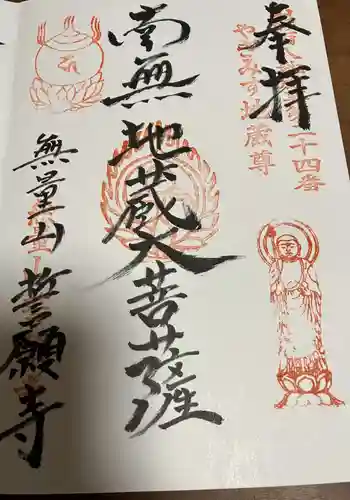 奉拝
二十四番
やごみず地蔵尊
南無地蔵大菩薩
無量山
誓願寺